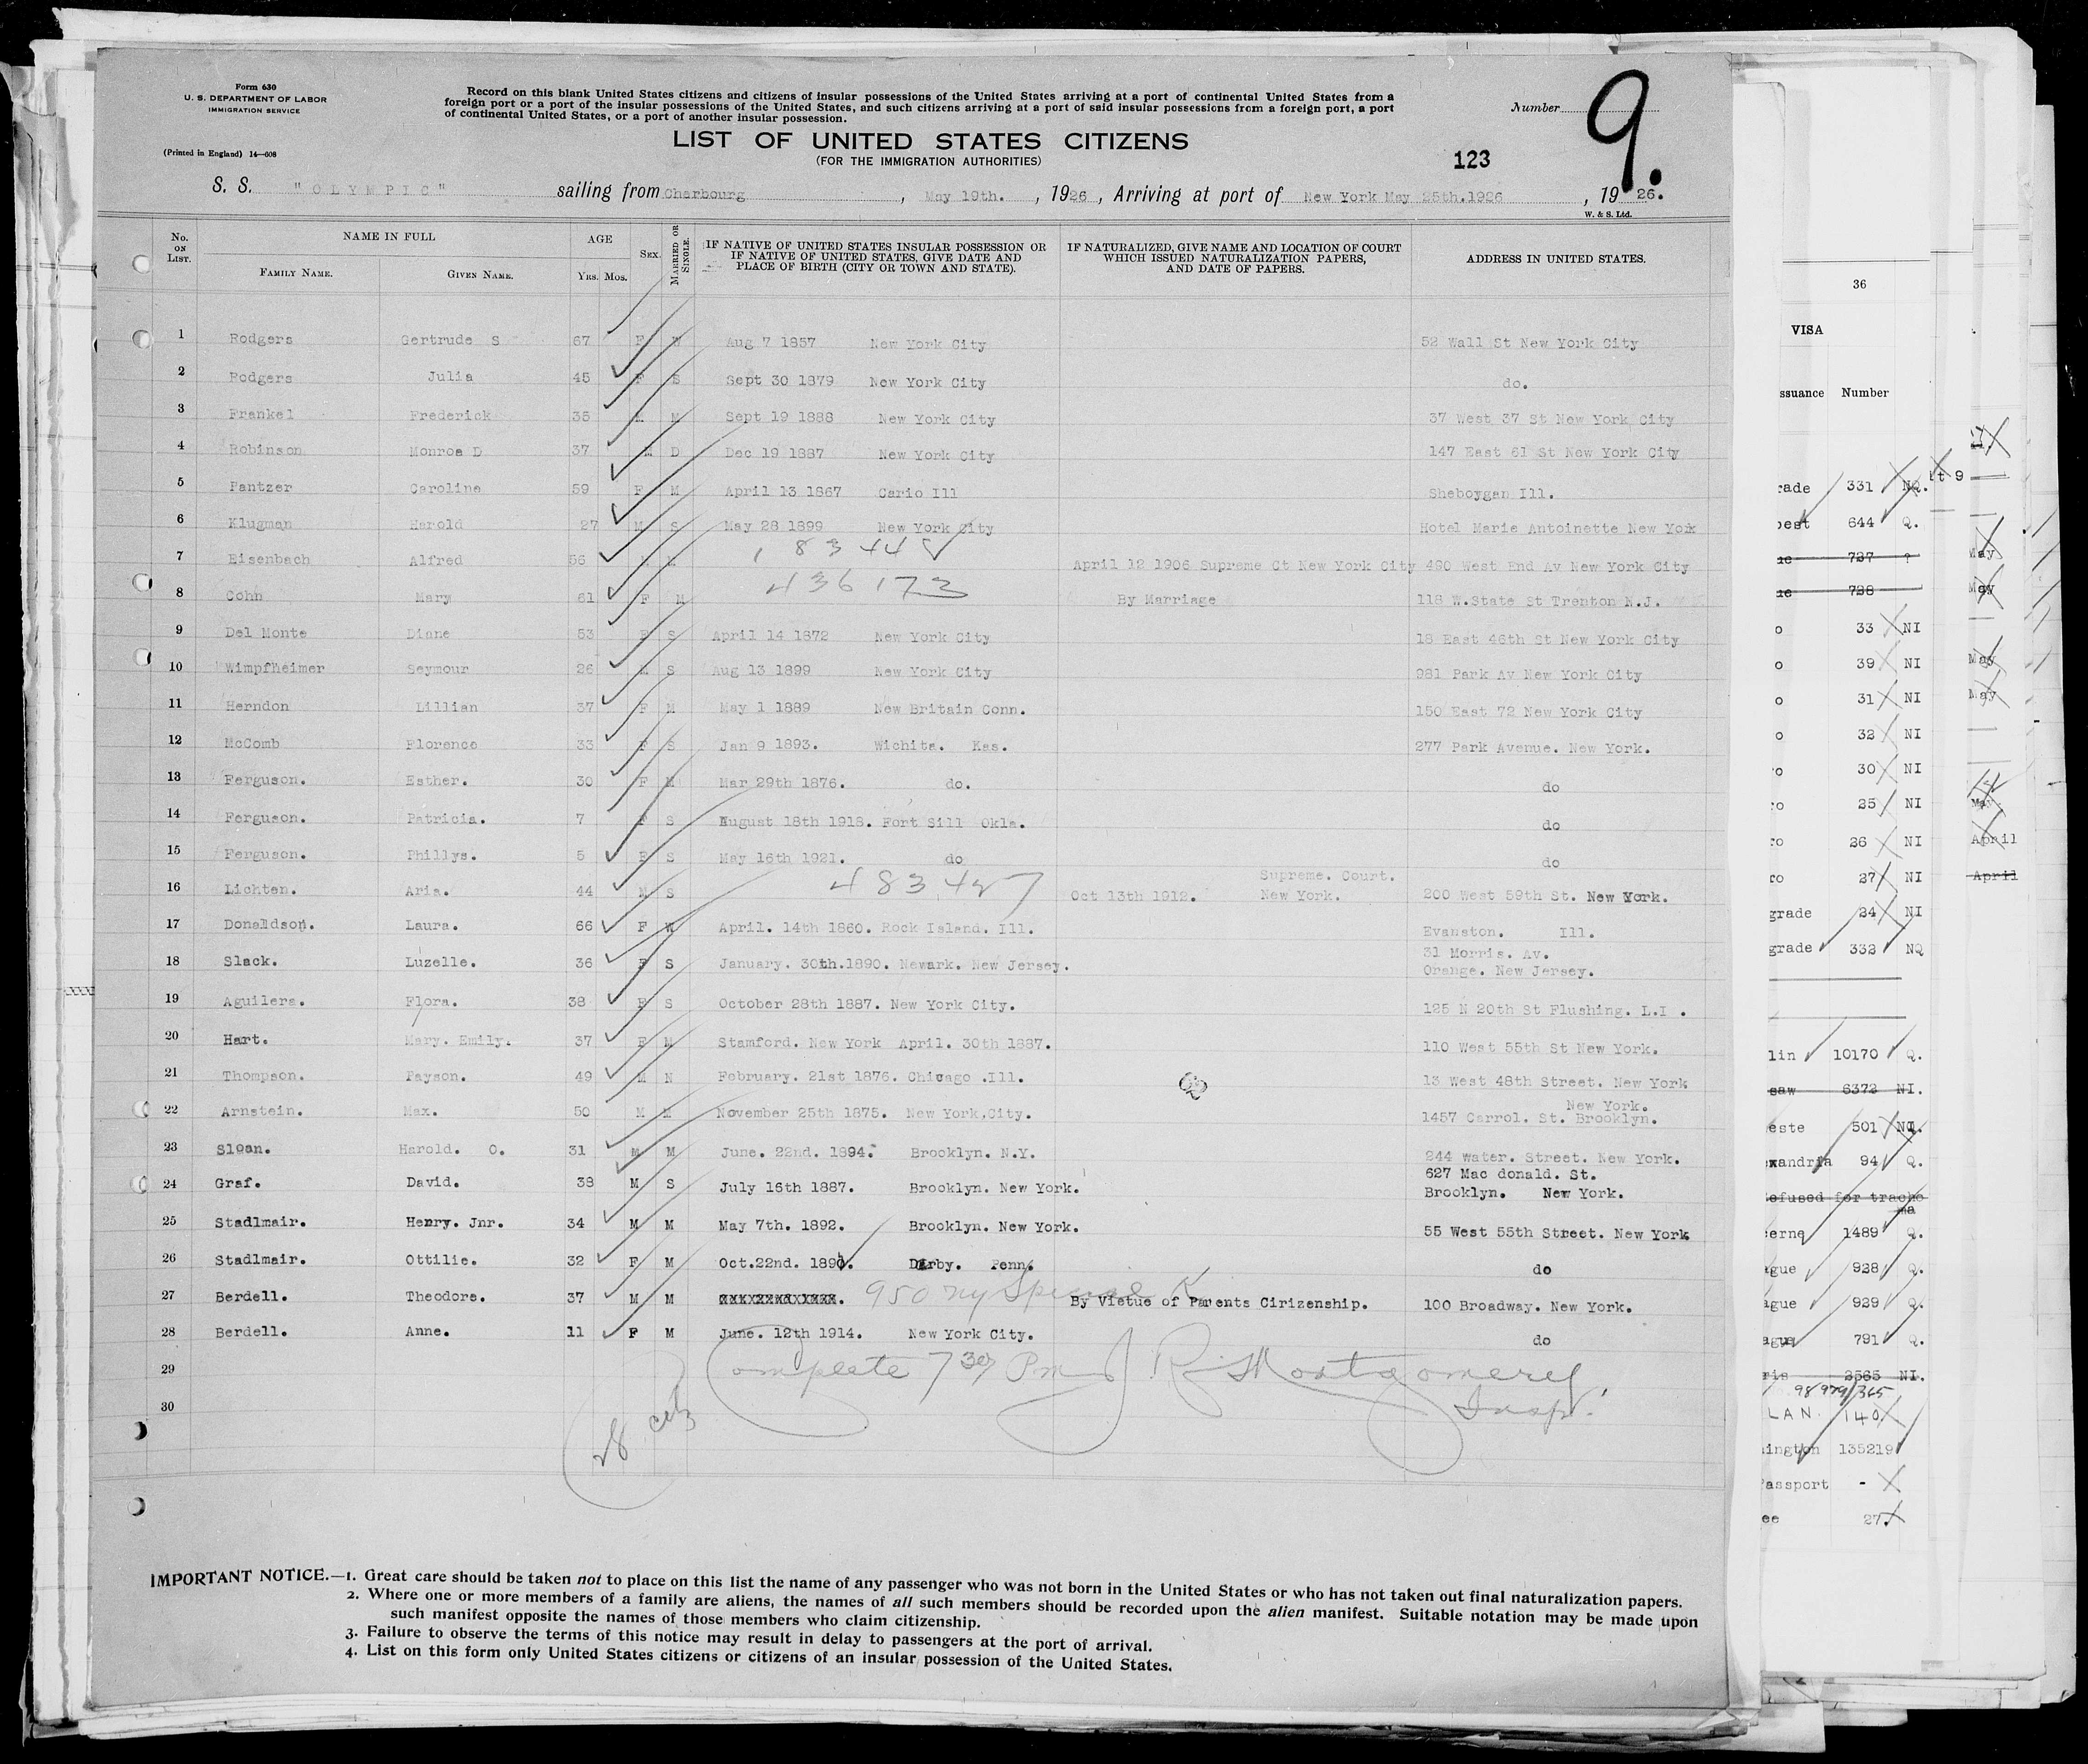 Form 630
U. S. DEPARTMENT OF LABOR
IMMIGRATION SERVICE
(Printed in England) 14—608
Record on this blank United States citizens and citizens of insular possessions of the United States arriving at a port of continental United States from a
foreign port or a port of the insular possessions of the United States, and such citizens arriving at a port of said insular possessions from a foreign port, a port
of continental United States, or a port of another insular possession.
Number 9.
LIST OF UNITED STATES CITIZENS
(FOR THE IMMIGRATION AUTHORITIES)
123
S. S. "OLYMPIC" sailing from Cherbourg, May 19th., 1926, Arriving at port of New York May 25th.1926, 1926.
W. & S. Ltd.
No. ON LIST. NAME IN FULL FAMILY NAME. GIVEN NAME. AGE YRS. MOS. SEX. MARRIED OR SINGLE. IF NATIVE OF UNITED STATES INSULAR POSSESSION OR IF NATIVE OF UNITED STATES, GIVE DATE AND PLACE OF BIRTH (CITY OR TOWN AND STATE). IF NATURALIZED, GIVE NAME AND LOCATION OF COURT WHICH ISSUED NATURALIZATION PAPERS, AND DATE OF PAPERS. ADDRESS IN UNITED STATES.
1 Rodgers Gertrude S 67 F W Aug 7 1857 New York City 52 Wall St New York City
2 Rodgers Julia 45 F S Sept 30 1879 New York City do.
3 Frankel Frederick 35 M M Sept 19 1888 New York City 37 West 37 St New York City
4 Robinson Monroe D 37 M D Dec 19 1887 New York City 147 East 61 St New York City
5 Pantzer Caroline 59 F M April 13 1867 Cario Ill Sheboygan Ill.
6 Klugman Harold 27 M S May 28 1899 New York City Hotel Marie Antoinette New York
7 Eisenbach Alfred 56 M M 183448 April 12 1906 Supreme Ct New York City 490 West End Av New York City
8 Cohn Mary 61 F M 436173 By Marriage 118 W.State St Trenton N.J.
9 Del Monte Diane 53 F S April 14 1872 New York City 18 East 46th St New York City
10 Wimpfheimer Seymour 26 M S Aug 13 1899 New York City 981 Park Av New York City
11 Herndon Lillian 37 F M May 1 1889 New Britain Conn. 150 East 72 New York City
12 McComb Florence 33 F S Jan 9 1893. Wichita. Kas. 277 Park Avenue. New York.
13 Ferguson. Esther. 30 F M Mar 29th 1876. do. do
14 Ferguson. Patricia. 7 F S August 18th 1918. Fort Sill Okla. do
15 Ferguson. Phillys. 5 F S May 16th 1921. do do
16 Lichten. Aria. 44 M S Oct 13th 1912. Supreme. Court. New York. 200 West 59th St. New York.
17 Donaldson. Laura. 66 F W April. 14th 1860. Rock Island. Ill. Evanston. Ill.
18 Slack. Luzelle. 36 F S January. 30th.1890. Newark. New Jersey. 31 Morris. Av. Orange. New Jersey.
19 Aguilera. Flora. 38 F S October 28th 1887. New York City. 125 N 20th St Flushing. L.I .
20 Hart. Mary. Emily. 37 F M Stamford. New York April. 30th 1887. 110 West 55th St New York.
21 Thompson. Payson. 49 M N February. 21st 1876. Chicago .Ill. 13 West 48th Street. New York
22 Arnstein. Max. 50 M M November 25th 1875. New York,City. New York. 1457 Carrol. St. Brooklyn.
23 Sloan. Harold. O. 31 M M June. 22nd. 1894. Brooklyn. N.Y. 244 Water. Street. New York.
24 Graf. David. 38 M S July 16th 1887. Brooklyn. New York. 627 Mac donald. St. Brooklyn. New York.
25 Stadlmair. Henry. Jnr. 34 M M May 7th. 1892. Brooklyn. New York. 55 West 55th Street. New York
26 Stadlmair. Ottilie. 32 F M Oct.22nd. 189 . Darby. Penn. do
27 Berdell. Theodore. 37 M M 950 ny Special By Vietue of Parents Cirizenship. 100 Broadway. New York.
28 Berdell. Anne. 11 F M June. 12th 1914. New York City. do
29 Complete 7 30 Pm J R Montgomery
30 28 citz Insp.
IMPORTANT NOTICE.—1. Great care should be taken not to place on this list the name of any passenger who was not born in the United States or who has not taken out final naturalization papers.
2. Where one or more members of a family are aliens, the names of all such members should be recorded upon the alien manifest. Suitable notation may be made upon
such manifest opposite the names of those members who claim citizenship.
3. Failure to observe the terms of this notice may result in delay to passengers at the port of arrival.
4. List on this form only United States citizens or citizens of an insular possession of the United States.
36
VISA
ssuance Number
rade 331 NQ.
pest 644 Q.
ue 727 ?
ue 728
o 33 NI
o 39 NI
o 31 NI
o 32 NI
o 30 NI
ro 25 NI
ro 26 NI
co 27 NI
grade 24 NI
grade 332 NQ
lin 10170 Q.
saw 6372 NI.
este 501 NQ.
xandria 94 Q.
efused for tracho
ma
erne 1489 Q.
ague 928 Q.
ague 929 Q.
ague 791 Q.
ris 2565 NI.
98979/365
LAN. 140
ington 135219
assport -
ee 27
t 9
May
May
May
May
April
April